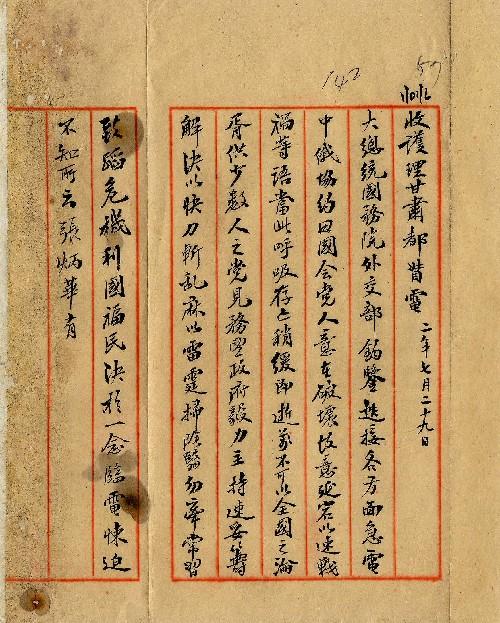 57
142
收護理甘肅都督電 二年七月二十九日
大總統國務院外交部鈞鑒迭接各方面急電
中俄協約因國會党人意在破壞故意延宕以速戰
禍等語當此呼吸存亡稍緩即逝萬不可以全國之淪
胥供少數人之党見務望政府毅力主持速妥籌
解決以快刀斬乱麻以雷霆掃陰翳勿牽常習
致蹈危機利國福民決於一念臨電悚迫
不知所云張炳華肴